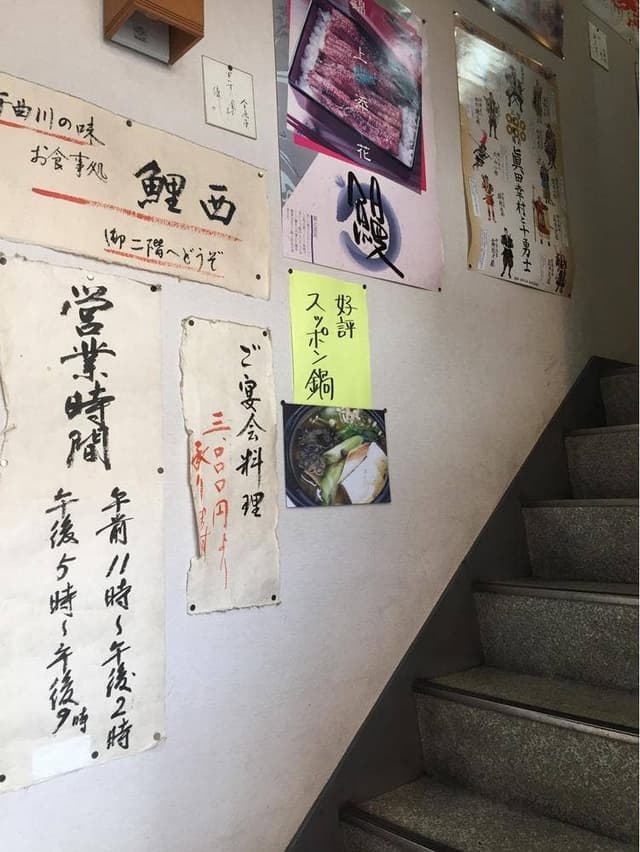 千曲川の味
お食事処
鯉西
御二階へどうぞ
営業時間
午前11時〜午後2時
午後5時〜午後9時
ご宴会料理
三、〇〇〇円より
承ります
上添花
鰻
好評
スッポン鍋
眞田幸村十勇士